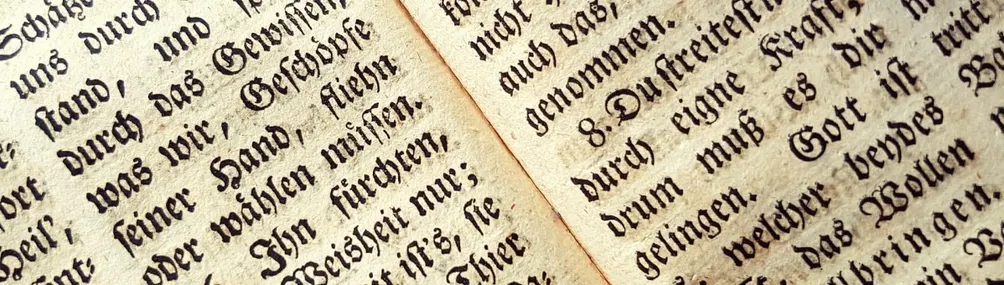 Schätze
uns durch und
stand,
durch das Gewissen,
was wir, Geschöpfe
seiner Hand, fliehn
oder wählen müssen.
Ihn fürchten,
Weisheit nur;
ist's, sie
Thier
ort
Heil',
nicht
auch das,
genommen.
8. Du streitest
durch eigne Kraft,
drum muß es dir
gelingen. Gott ist
welcher beydes
das Wollen
tritt